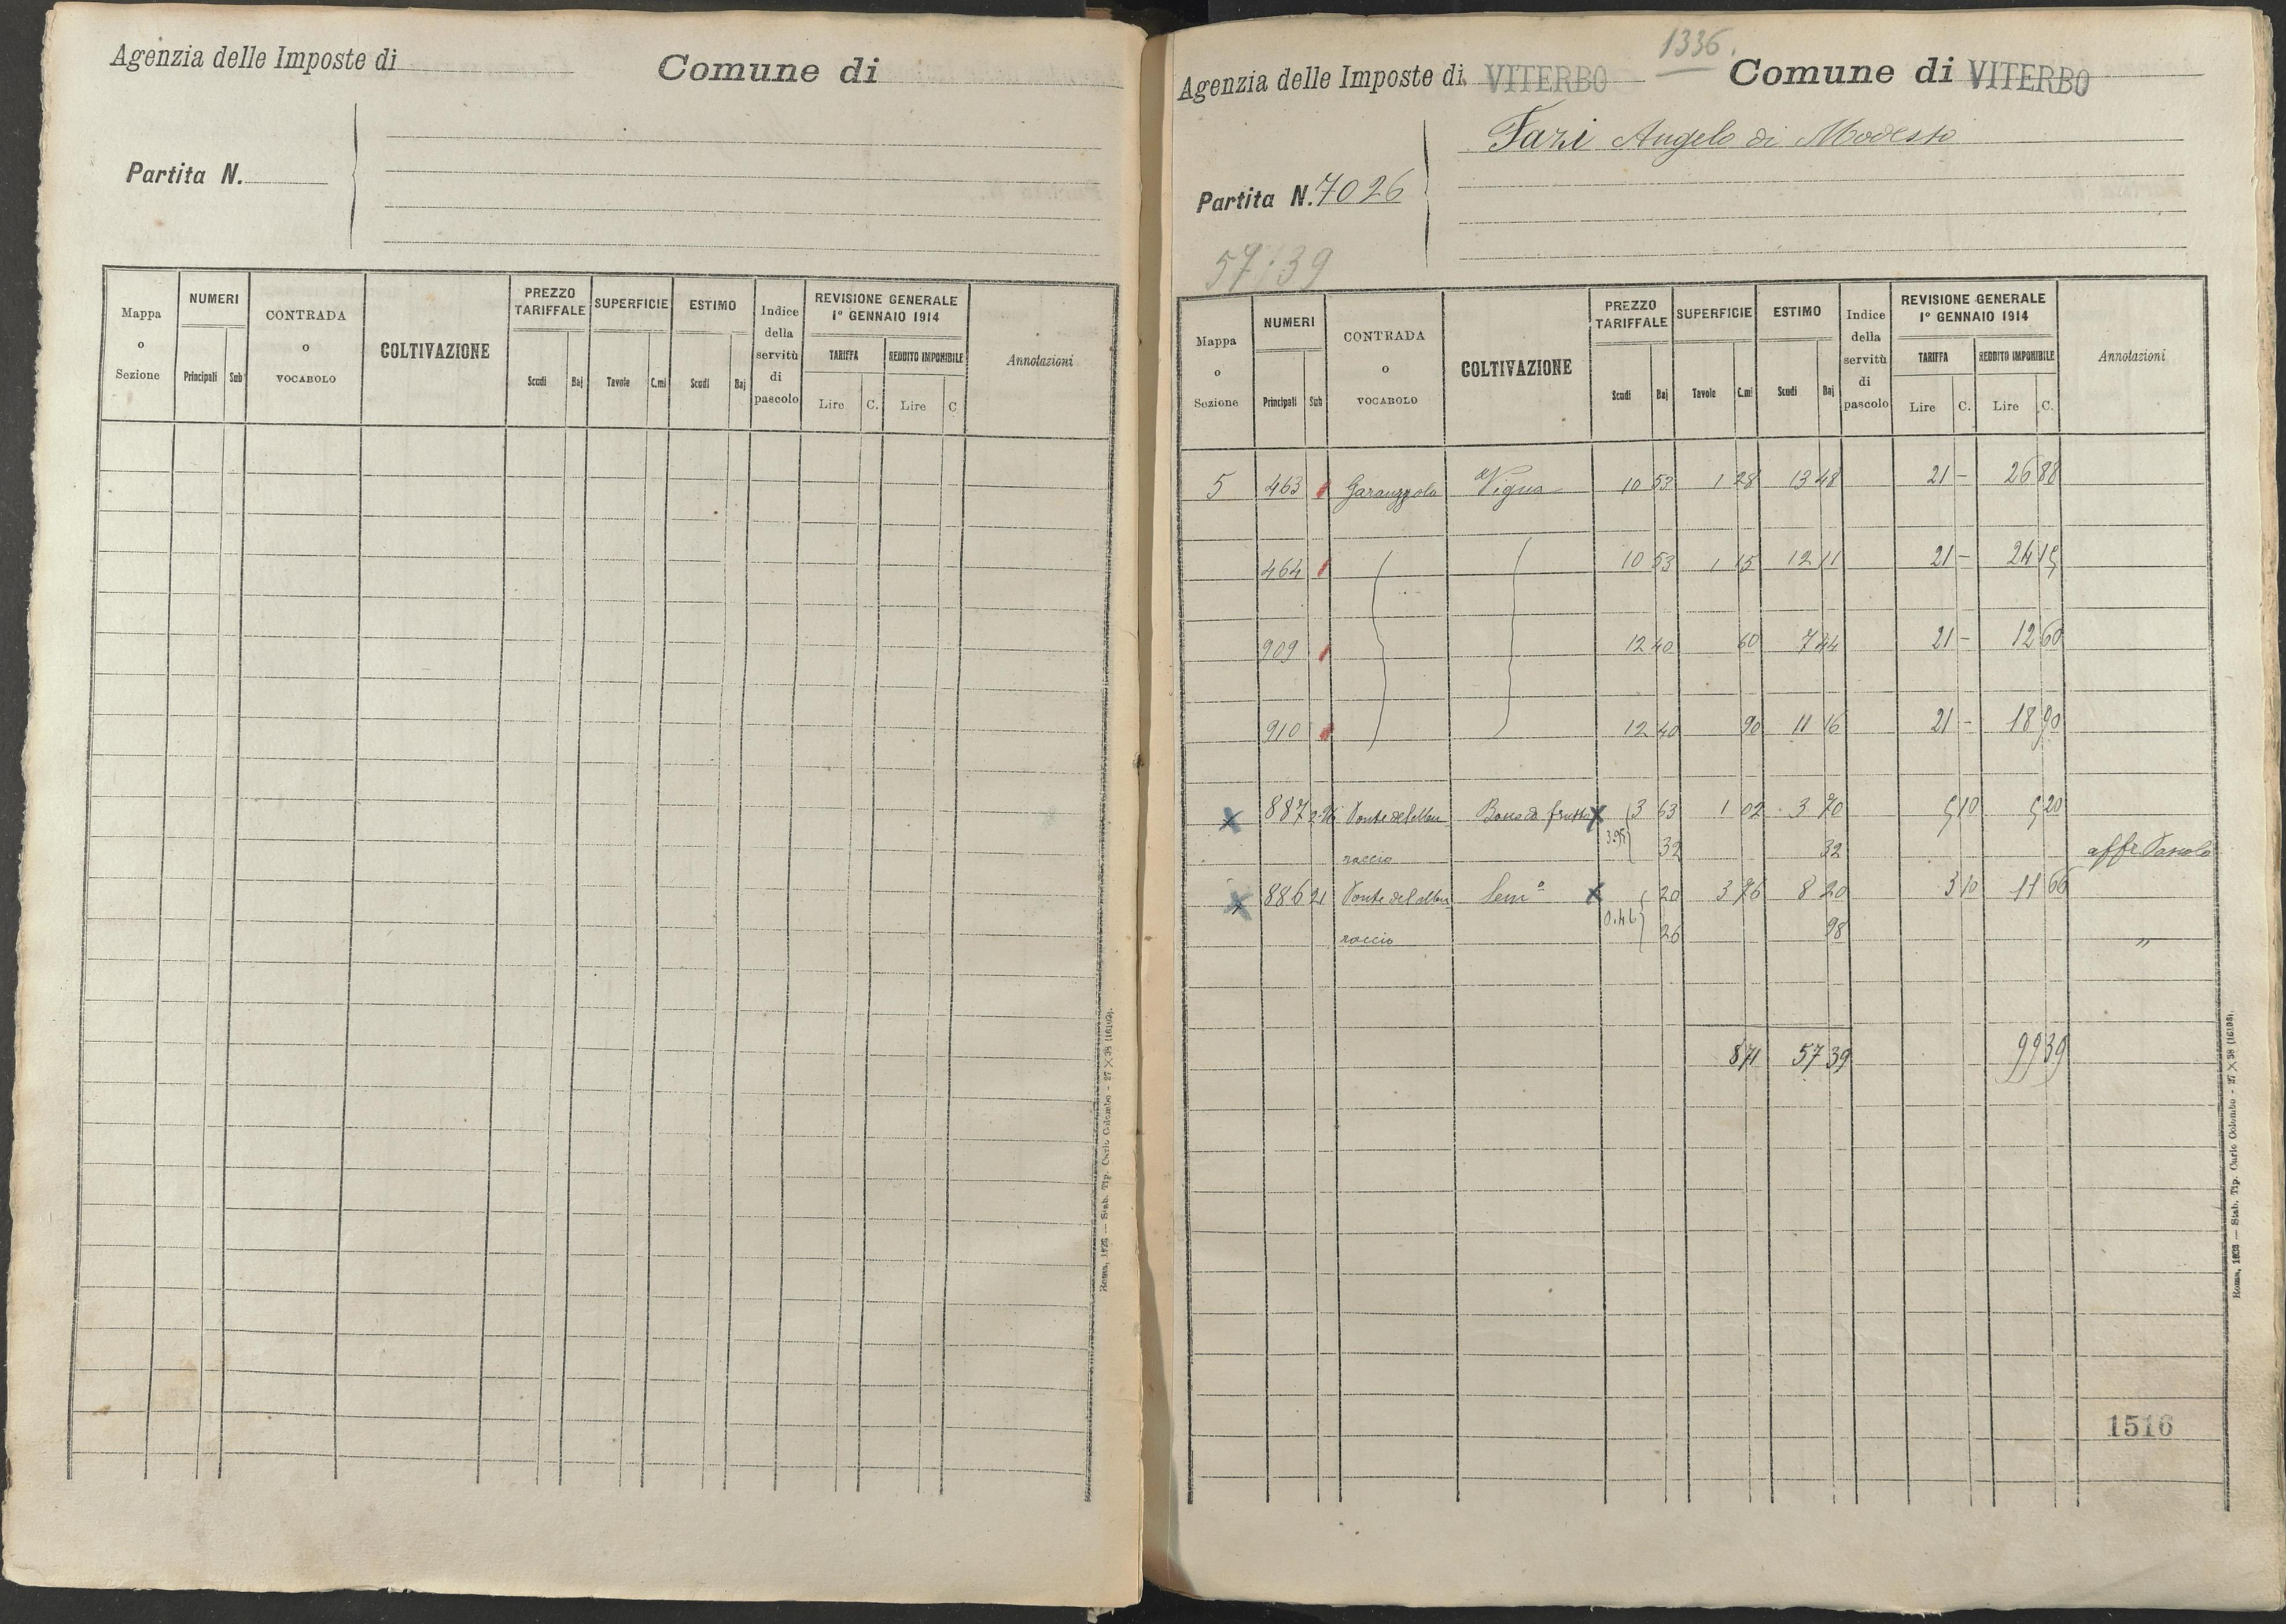 Agenzia delle Imposte di
Comune di
Partita N.
Mappa o Sezione
NUMERI
Principali Sub
CONTRADA o VOCABOLO
COLTIVAZIONE
PREZZO TARIFFALE
Scudi Baj
SUPERFICIE
Tavole C.mi
ESTIMO
Scudi Baj
Indice della servitù di pascolo
REVISIONE GENERALE
1º GENNAIO 1914
TARIFFA REDDITO IMPONIBILE
Lire C. Lire C
Annotazioni
Roma, — Stab. Tip. Carlo Colombo - 27 × 38 (16193).
1336.
Agenzia delle Imposte di VITERBO
Comune di VITERBO
Fazi Angelo di Modesto
Partita N. 7026
57:39
Mappa o Sezione
NUMERI
Principali Sub
CONTRADA o VOCABOLO
COLTIVAZIONE
PREZZO TARIFFALE
Scudi Baj
SUPERFICIE
Tavole C.mi
ESTIMO
Scudi Baj
Indice della servitù di pascolo
REVISIONE GENERALE
1º GENNAIO 1914
TARIFFA REDDITO IMPONIBILE
Lire C. Lire C.
Annotazioni
5 463 Vigna 10 53 1 28 13 48 21 – 26 88
464 10 53 1 15 12 11 21 – 24 15
909 12 40 60 7 44 21 – 12 60
910 12 40 90 11 16 21 – 18 90
X 887 X 3 63 1 02 3 70 5 10 5 20
raccio 3.95 32 32
X 886 21 Sem.º X 20 3 76 8 20 3 10 11 66
raccio 0.46 26 98 "
8 71 57 39 99 39
Roma, — Stab. Tip. Carlo Colombo - 27 × 38 (16193).
1516